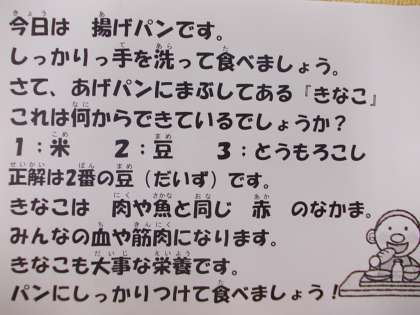 今日は　揚げパンです。
しっかりっ手を洗って食べましょう。
さて、あげパンにまぶしてある『きなこ』
これは何からできているでしょうか？
1：米　　2：豆　　3：とうもろこし
正解は2番の豆（だいず）です。
きなこは　肉や魚と同じ　赤　のなかま。
みんなの血や筋肉になります。
きなこも大事な栄養です。
パンにしっかりつけて食べましょう！